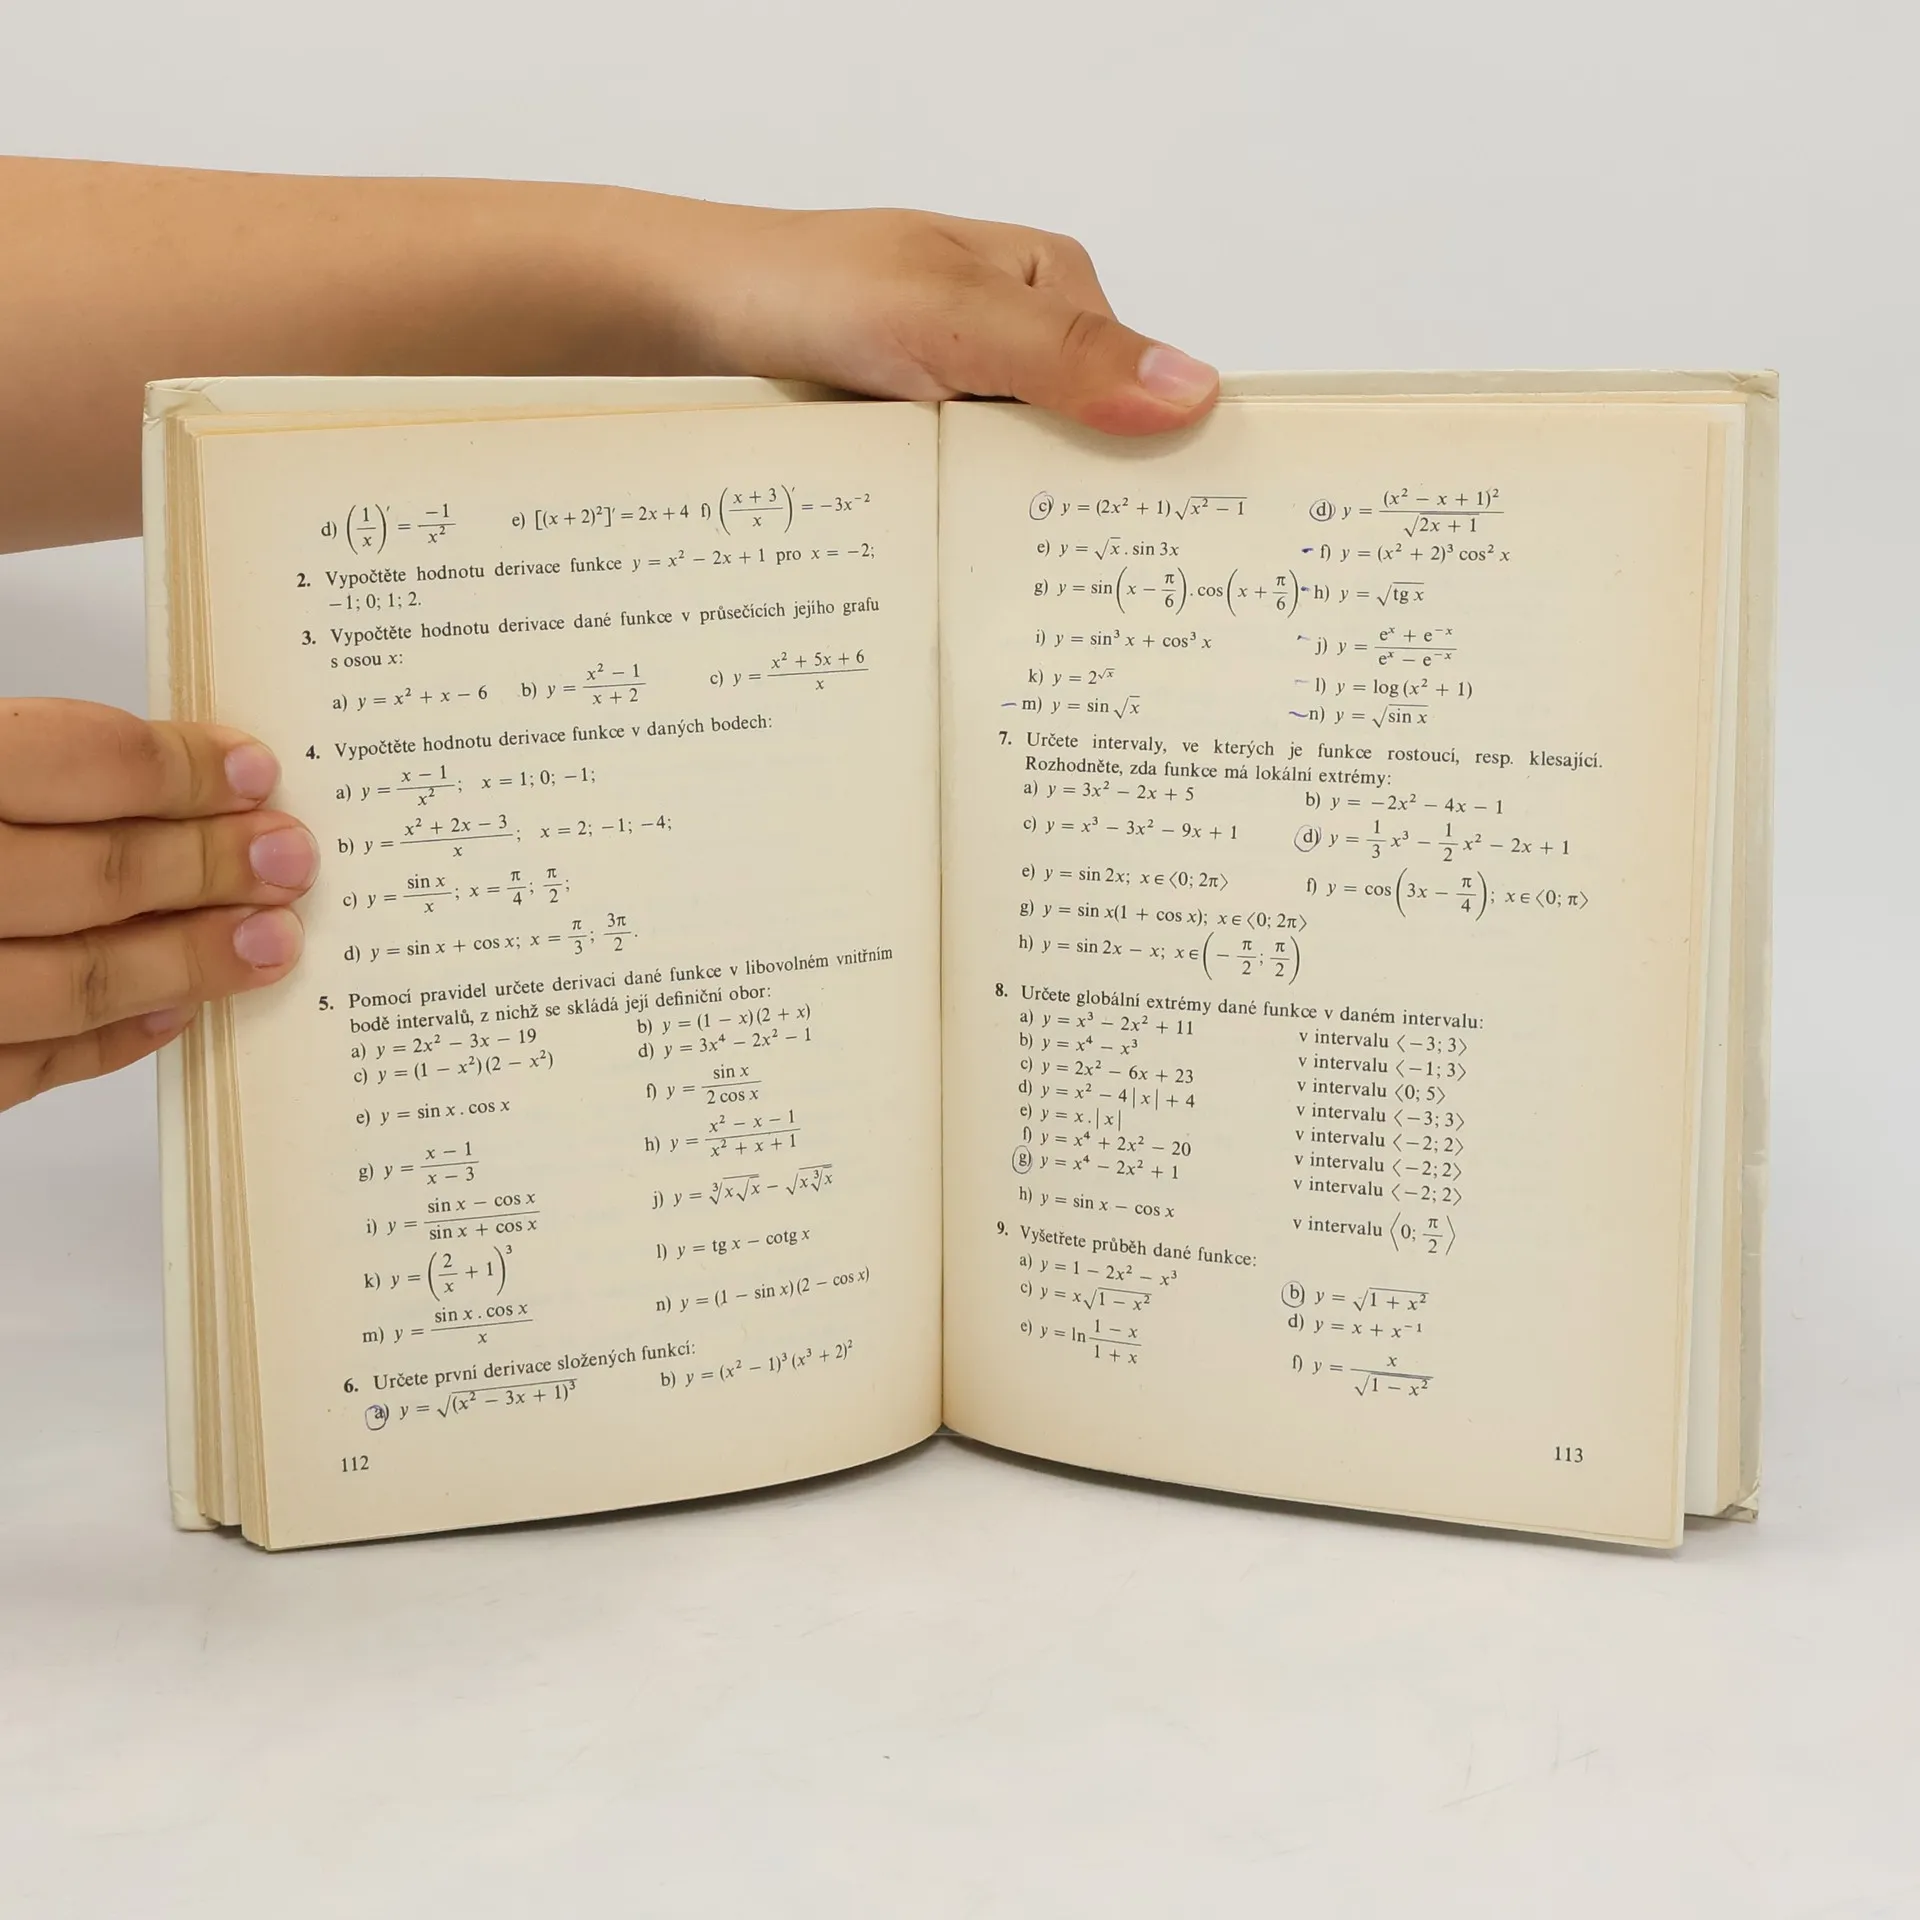 d) (1/x)' = -1/x² e) [(x + 2)²]' = 2x + 4 f) ((x + 3)/x)' = -3x⁻²
2. Vypočtěte hodnotu derivace funkce y = x² − 2x + 1 pro x = −2;
−1; 0; 1; 2.
3. Vypočtěte hodnotu derivace dané funkce v průsečících jejího grafu
s osou x:
a) y = x² + x − 6 b) y = (x² − 1)/(x + 2) c) y = (x² + 5x + 6)/x
4. Vypočtěte hodnotu derivace funkce v daných bodech:
a) y = (x − 1)/x²; x = 1; 0; −1;
b) y = (x² + 2x − 3)/x; x = 2; −1; −4;
c) y = sin x/x; x = π/4; π/2;
d) y = sin x + cos x; x = π/3; 3π/2.
5. Pomocí pravidel určete derivaci dané funkce v libovolném vnitřním
bodě intervalů, z nichž se skládá její definiční obor:
a) y = 2x² − 3x − 19 b) y = (1 − x)(2 + x)
c) y = (1 − x²)(2 − x²) d) y = 3x⁴ − 2x² − 1
e) y = sin x . cos x f) y = sin x/2 cos x
g) y = (x − 1)/(x − 3) h) y = (x² − x − 1)/(x² + x + 1)
i) y = (sin x − cos x)/(sin x + cos x) j) y = ∛(x√x) − √(x∛x)
k) y = (2/x + 1)³ l) y = tg x − cotg x
m) y = sin x . cos x/x n) y = (1 − sin x)(2 − cos x)
6. Určete první derivace složených funkcí:
a) y = √(x² − 3x + 1)³ b) y = (x² − 1)³ (x³ + 2)²
112
c) y = (2x² + 1)√(x² − 1) d) y = (x² − x + 1)²/√(2x + 1)
e) y = √x . sin 3x f) y = (x² + 2)³ cos² x
g) y = sin(x − π/6) . cos(x + π/6) h) y = √(tg x)
i) y = sin³ x + cos³ x j) y = (eˣ + e⁻ˣ)/(eˣ − e⁻ˣ)
k) y = 2^√x l) y = log (x² + 1)
m) y = sin √x n) y = √(sin x)
7. Určete intervaly, ve kterých je funkce rostoucí, resp. klesající.
Rozhodněte, zda funkce má lokální extrémy:
a) y = 3x² − 2x + 5 b) y = −2x² − 4x − 1
c) y = x³ − 3x² − 9x + 1 d) y = 1/3 x³ − 1/2 x² − 2x + 1
e) y = sin 2x; x ∈ ⟨0; 2π⟩ f) y = cos(3x − π/4); x ∈ ⟨0; π⟩
g) y = sin x(1 + cos x); x ∈ ⟨0; 2π⟩
h) y = sin 2x − x; x ∈ (−π/2; π/2)
8. Určete globální extrémy dané funkce v daném intervalu:
a) y = x³ − 2x² + 11 v intervalu ⟨−3; 3⟩
b) y = x⁴ − x³ v intervalu ⟨−1; 3⟩
c) y = 2x² − 6x + 23 v intervalu ⟨0; 5⟩
d) y = x² − 4|x| + 4 v intervalu ⟨−3; 3⟩
e) y = x . |x| v intervalu ⟨−2; 2⟩
f) y = x⁴ + 2x² − 20 v intervalu ⟨−2; 2⟩
g) y = x⁴ − 2x² + 1 v intervalu ⟨−2; 2⟩
h) y = sin x − cos x v intervalu ⟨0; π/2⟩
9. Vyšetřete průběh dané funkce:
a) y = 1 − 2x² − x³ b) y = √(1 + x²)
c) y = x√(1 − x²) d) y = x + x⁻¹
e) y = ln (1 − x)/(1 + x) f) y = x/√(1 − x²)
113